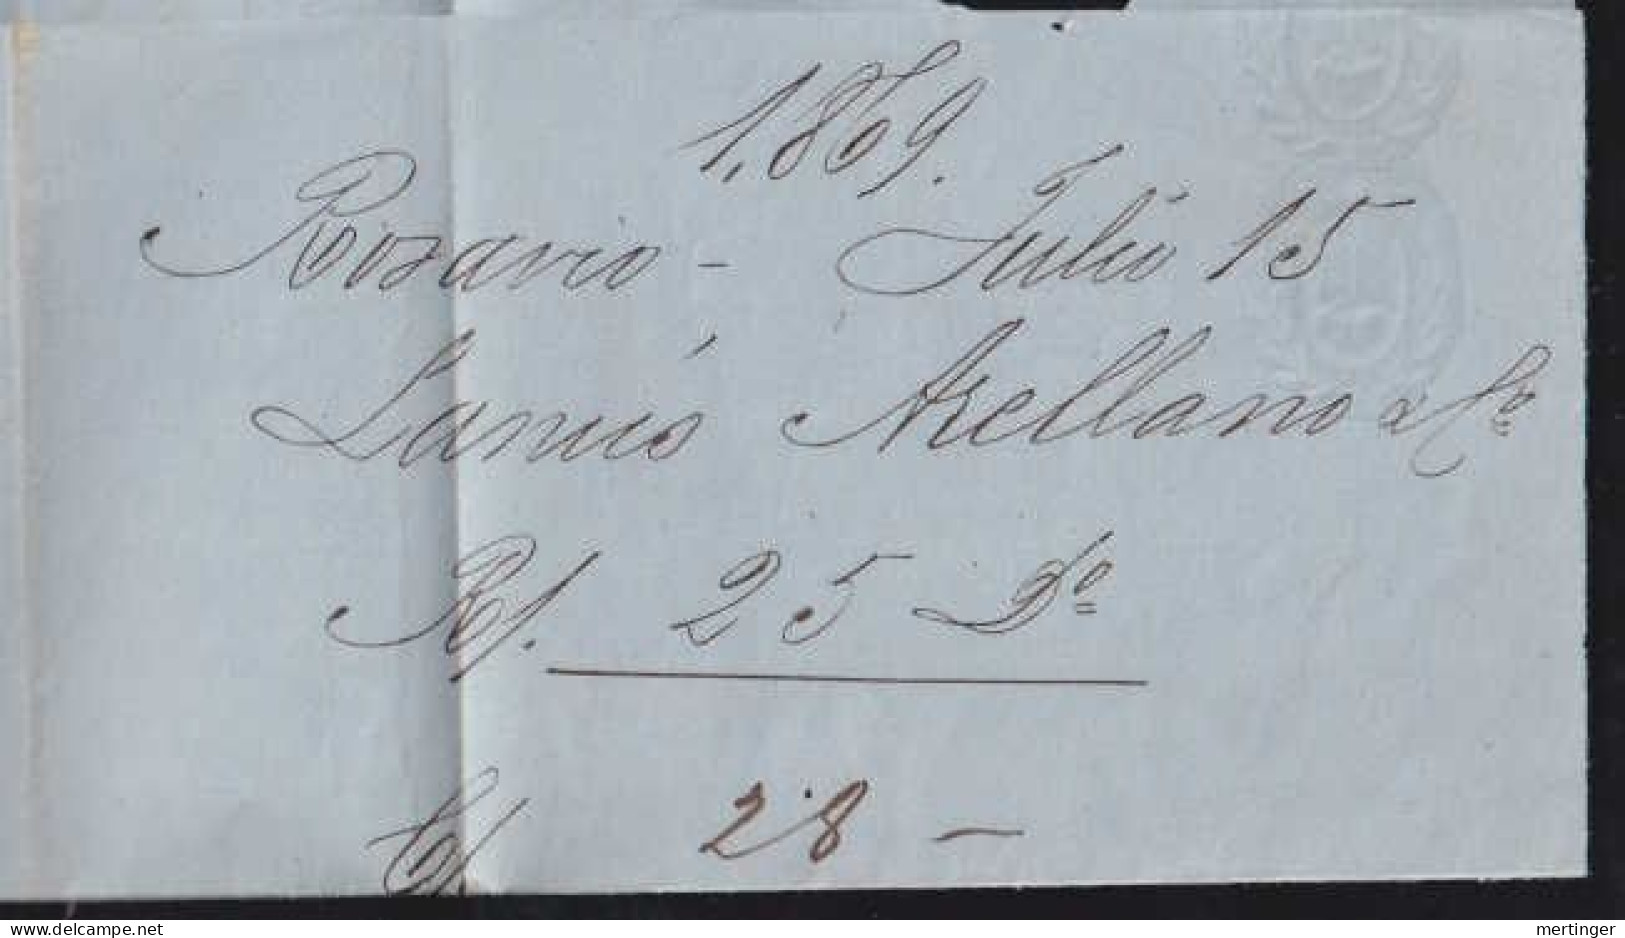 1,869.
Rosario - Julio 15
Lanús Arellano & Ca
R/. 25 Do
C/ 28 -
www.delcampe.net
mertinger